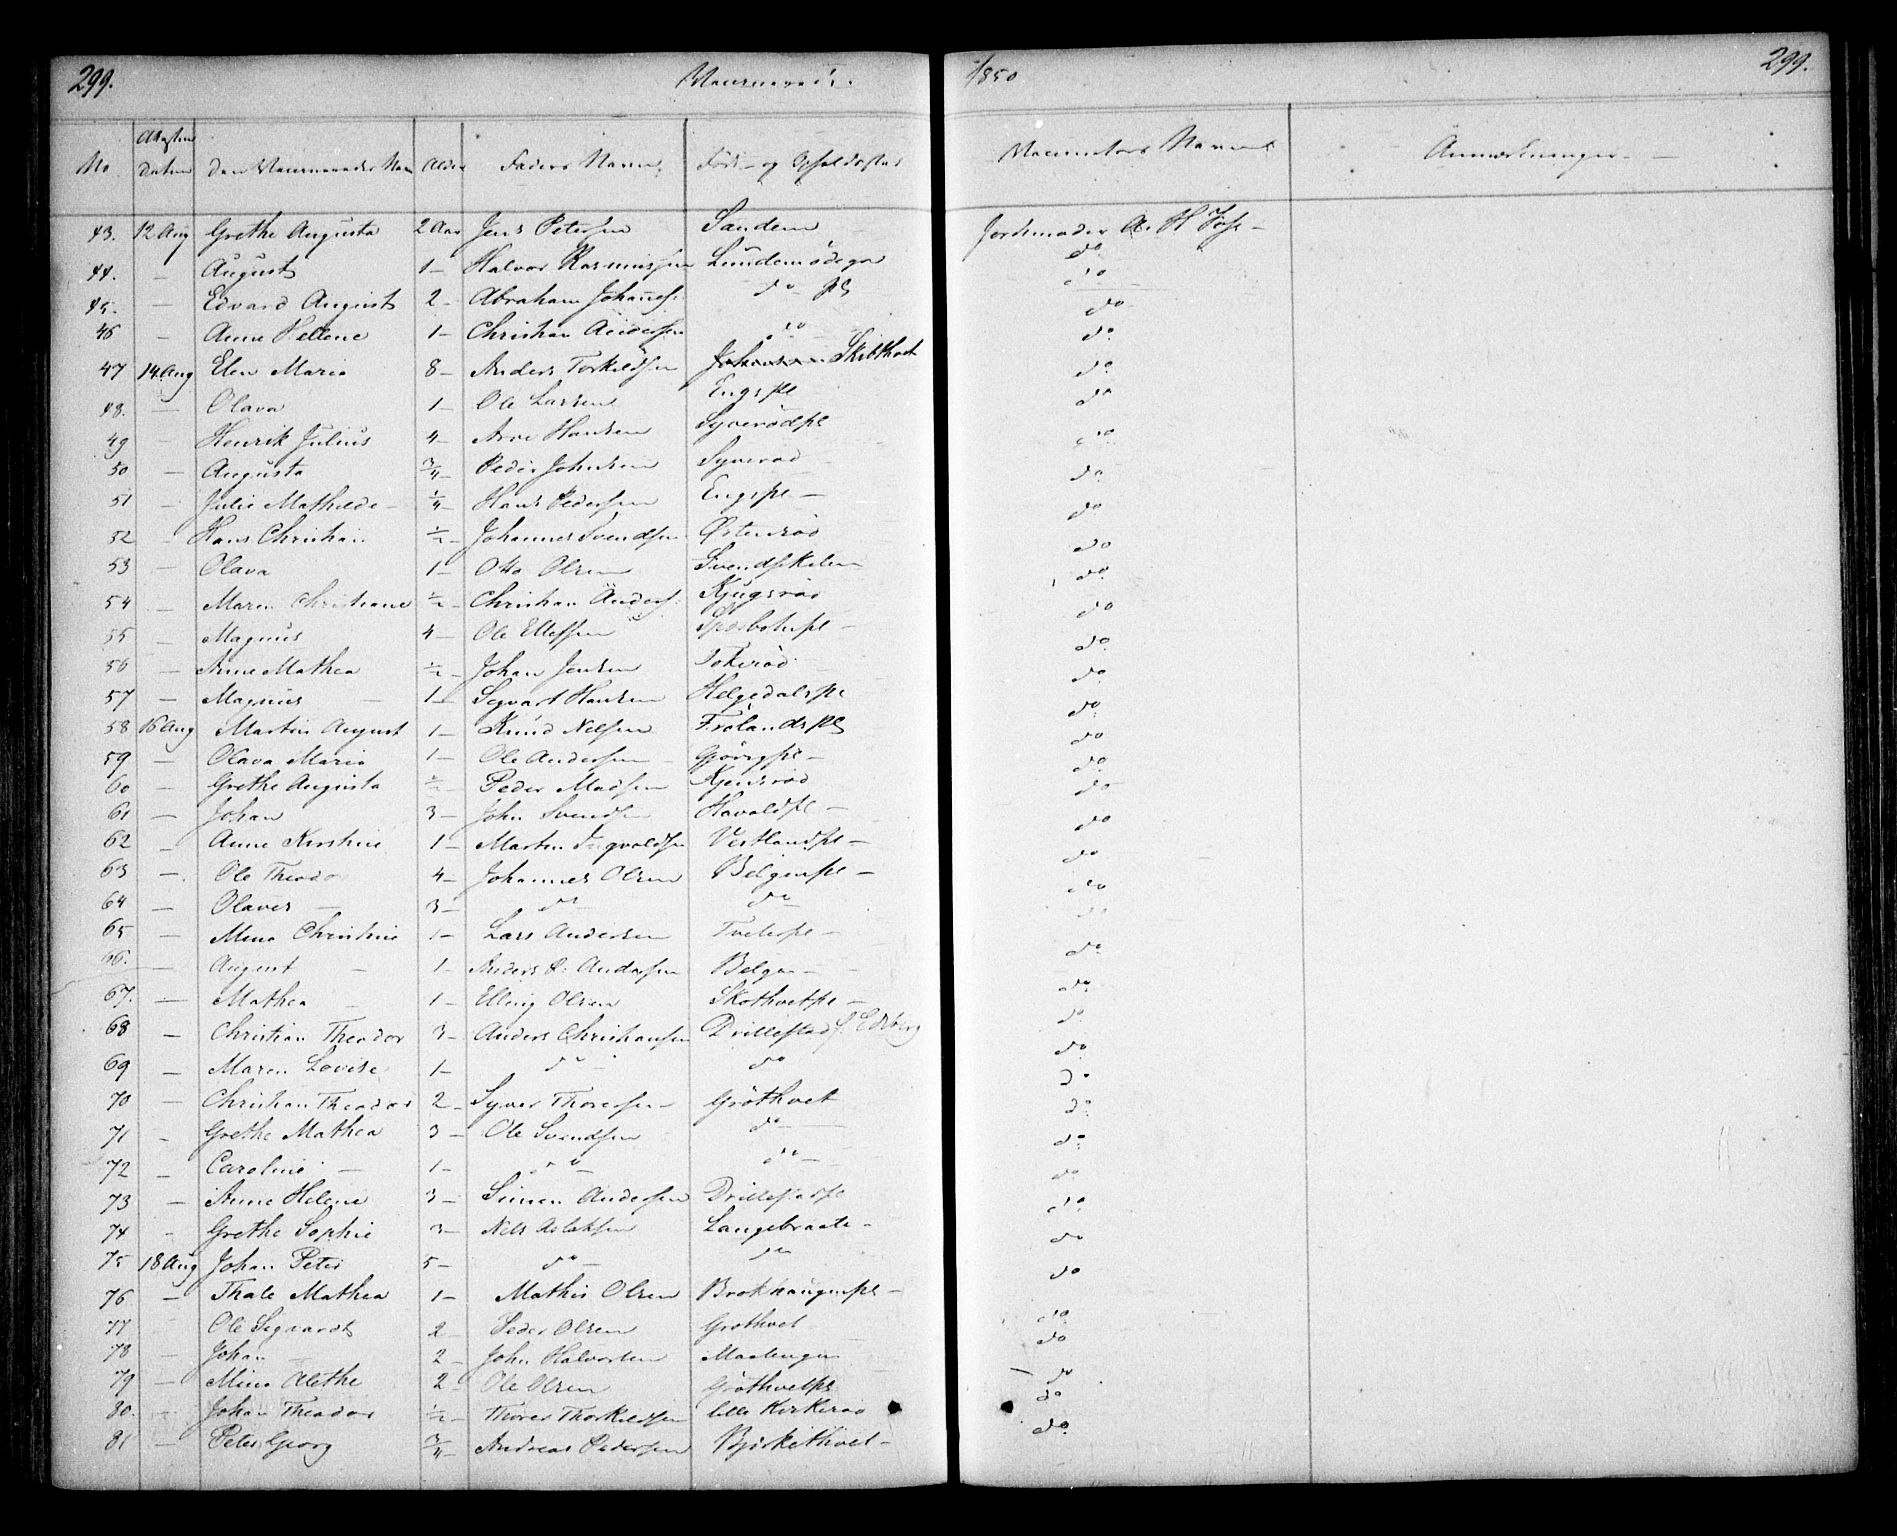 299. Vaccinerede.
1850 299.
No Attestens Datum Den Vaccineredes Navn Alder Faders Navn Føde- og Opholdssted
Vaccinators Navn Anmærkninger
43. 12 Aug Grethe Augusta 2 Aar Jens Petersen Sandem Jordemoder A. H.
44. — August 1 — Halvor Rasmussen do
45. — Edvard August 2 — Abraham Johannes: do pl do
46 — Anne Hellene 1 — Christian Andersen do do
47 14 Aug Elen Maria 8 — Anders Torkildsen Skibthvet do
48. — Olava 1 — Ole Larsen Engspl do
49 — Henrik Julius 4 — Arve Hansen Syverødpl do
50 — Augusta 3/4 — Peder Johnsen Syverød do
51 — Julie Mathilde — 1/4 — Hans Pedersen Engspl — do
52 — Hans Christian 1/2 — Johannes Svendsen Østensrød do
53 — Olava 1 — Otto Olsen do
54 — Maren Christiane 1/2 — Christian Anders: Kjugsrød do
55 — Magnus 4 — Ole Ellefsen do
56 — Anne Mathea 1/2 — Johan Jensen Tokerød do
57 — Magnus — 1 — Segvart Hansen Helgedalspl do
58 16 Aug Martin August 1 — Knud Nelsen Frølandspl do
59 — Olava Maria 1 — Ole Andersen do
60 — Grethe Augusta 1/2 — Peder Madsen Kjensrød do
61 — Johan 3 — John Svendsen Havaldspl — do
62 — Anne Kirstine 1 — Martin Ingvaldsen Vestlandspl — do
63 — Ole Theodor 4 — Johannes Olsen Belgenpl — do
64 — Olaves — 3 — do do do
65 — Mina Christine 1 — Lars Andersen Tveterpl — do
66. — August — 1 — Anders P: Andersen Belgen — do
67. — Mathea — 1 — Elling Olsen Skothvetpl — do
68 — Christian Theodor 3 — Anders Christiansen Drillestad do
69 — Maren Lovise 1 — do do do
70 — Christian Theodor 2 — Syver Thoresen — Grøthvet do
71 — Grethe Mathea 3 — Ole Svendsen do do
72 — Caroline — 1 — do do do
73 — Anne Helene 3 — Simen Andersen Drillestadpl do
74 — Grethe Sophie 3 — Nels Aslaksen Langebraate — do
75 18 Aug Johan Peter 5 — do do do
76 — Thale Mathea 1 — Mathis Olsen Brokhaugenpl — do
77 — Ole Segvardt 2 — Peder Olsen Grøthvet do
78 — Johan — 2 — John Halvorsen do
79 — Mina Alethe 2 — Ole Olsen Grøthvetpl do
80. — Johan Theodor 1/2 — Thores Thorkildsen lille Kirkerød do
81 — Peter Georg 3/4 — Andreas Pedersen Bjirkethvet — do